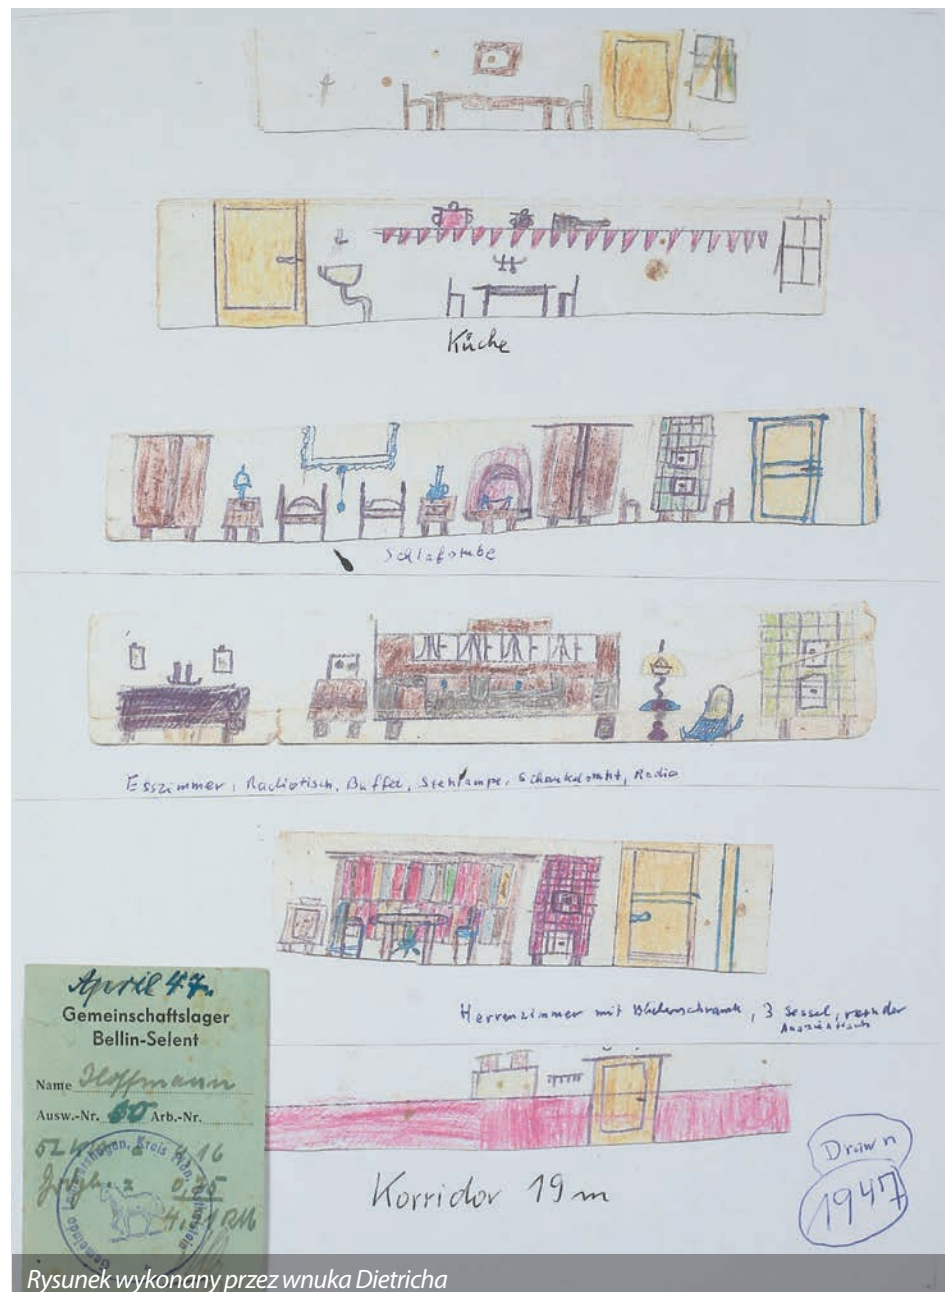 Küche
Schlafstube
Esszimmer, Radiotisch, Buffet, Stehlampe, Schaukelstuhl, Radio
Herrenzimmer mit Bücherschrank, 3 Sessel, runder
Ausziehtisch
April 47.
Gemeinschaftslager
Bellin-Selent
Name Hoffmann
Ausw.-Nr. 60 Arb.-Nr.
Korridor 19m
Drawn
1947
Rysunek wykonany przez wnuka Dietricha